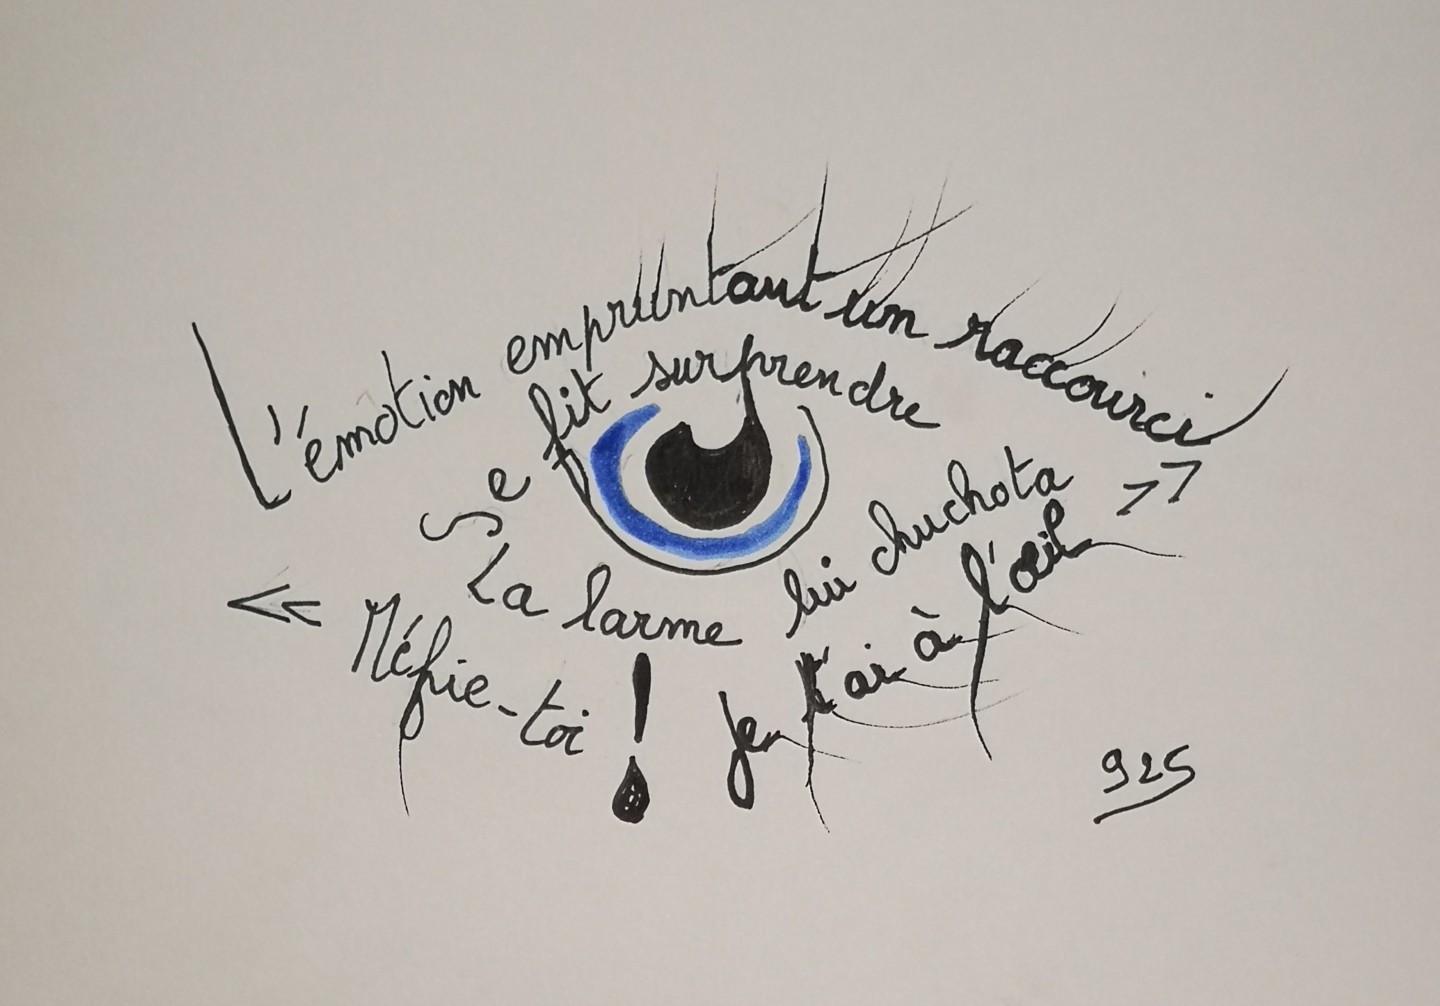 L'émotion empruntant un raccourci
Se fit surprendre
La larme lui chuchota
<< Méfie-toi ! Je t'ai à l'œil >>
925